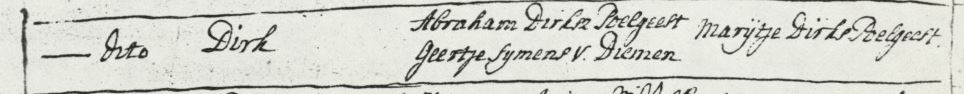 — dito Dirk Abraham Dirksz Poelgeest Marijtje Dirks Poelgeest.
Geertje Symens V. Diemen